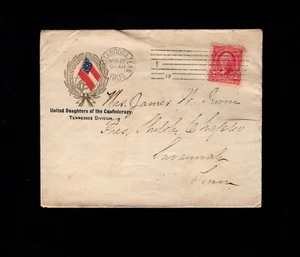 NOV 25
United Daughters of the Confederacy.
TENNESSEE DIVISION.
Mrs. James W. Irwin
Pres. Shiloh Chapter
Savannah
Tenn